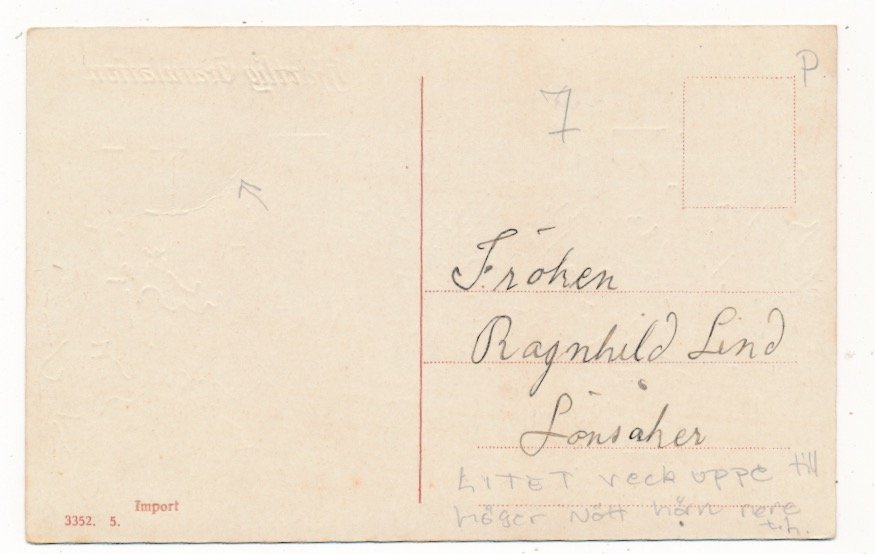 P
7
Fröken
Ragnhild Lind
Lönsåker
LITET veck uppe till
höger Nött hörn nere
t.h.
Import
3352. 5.